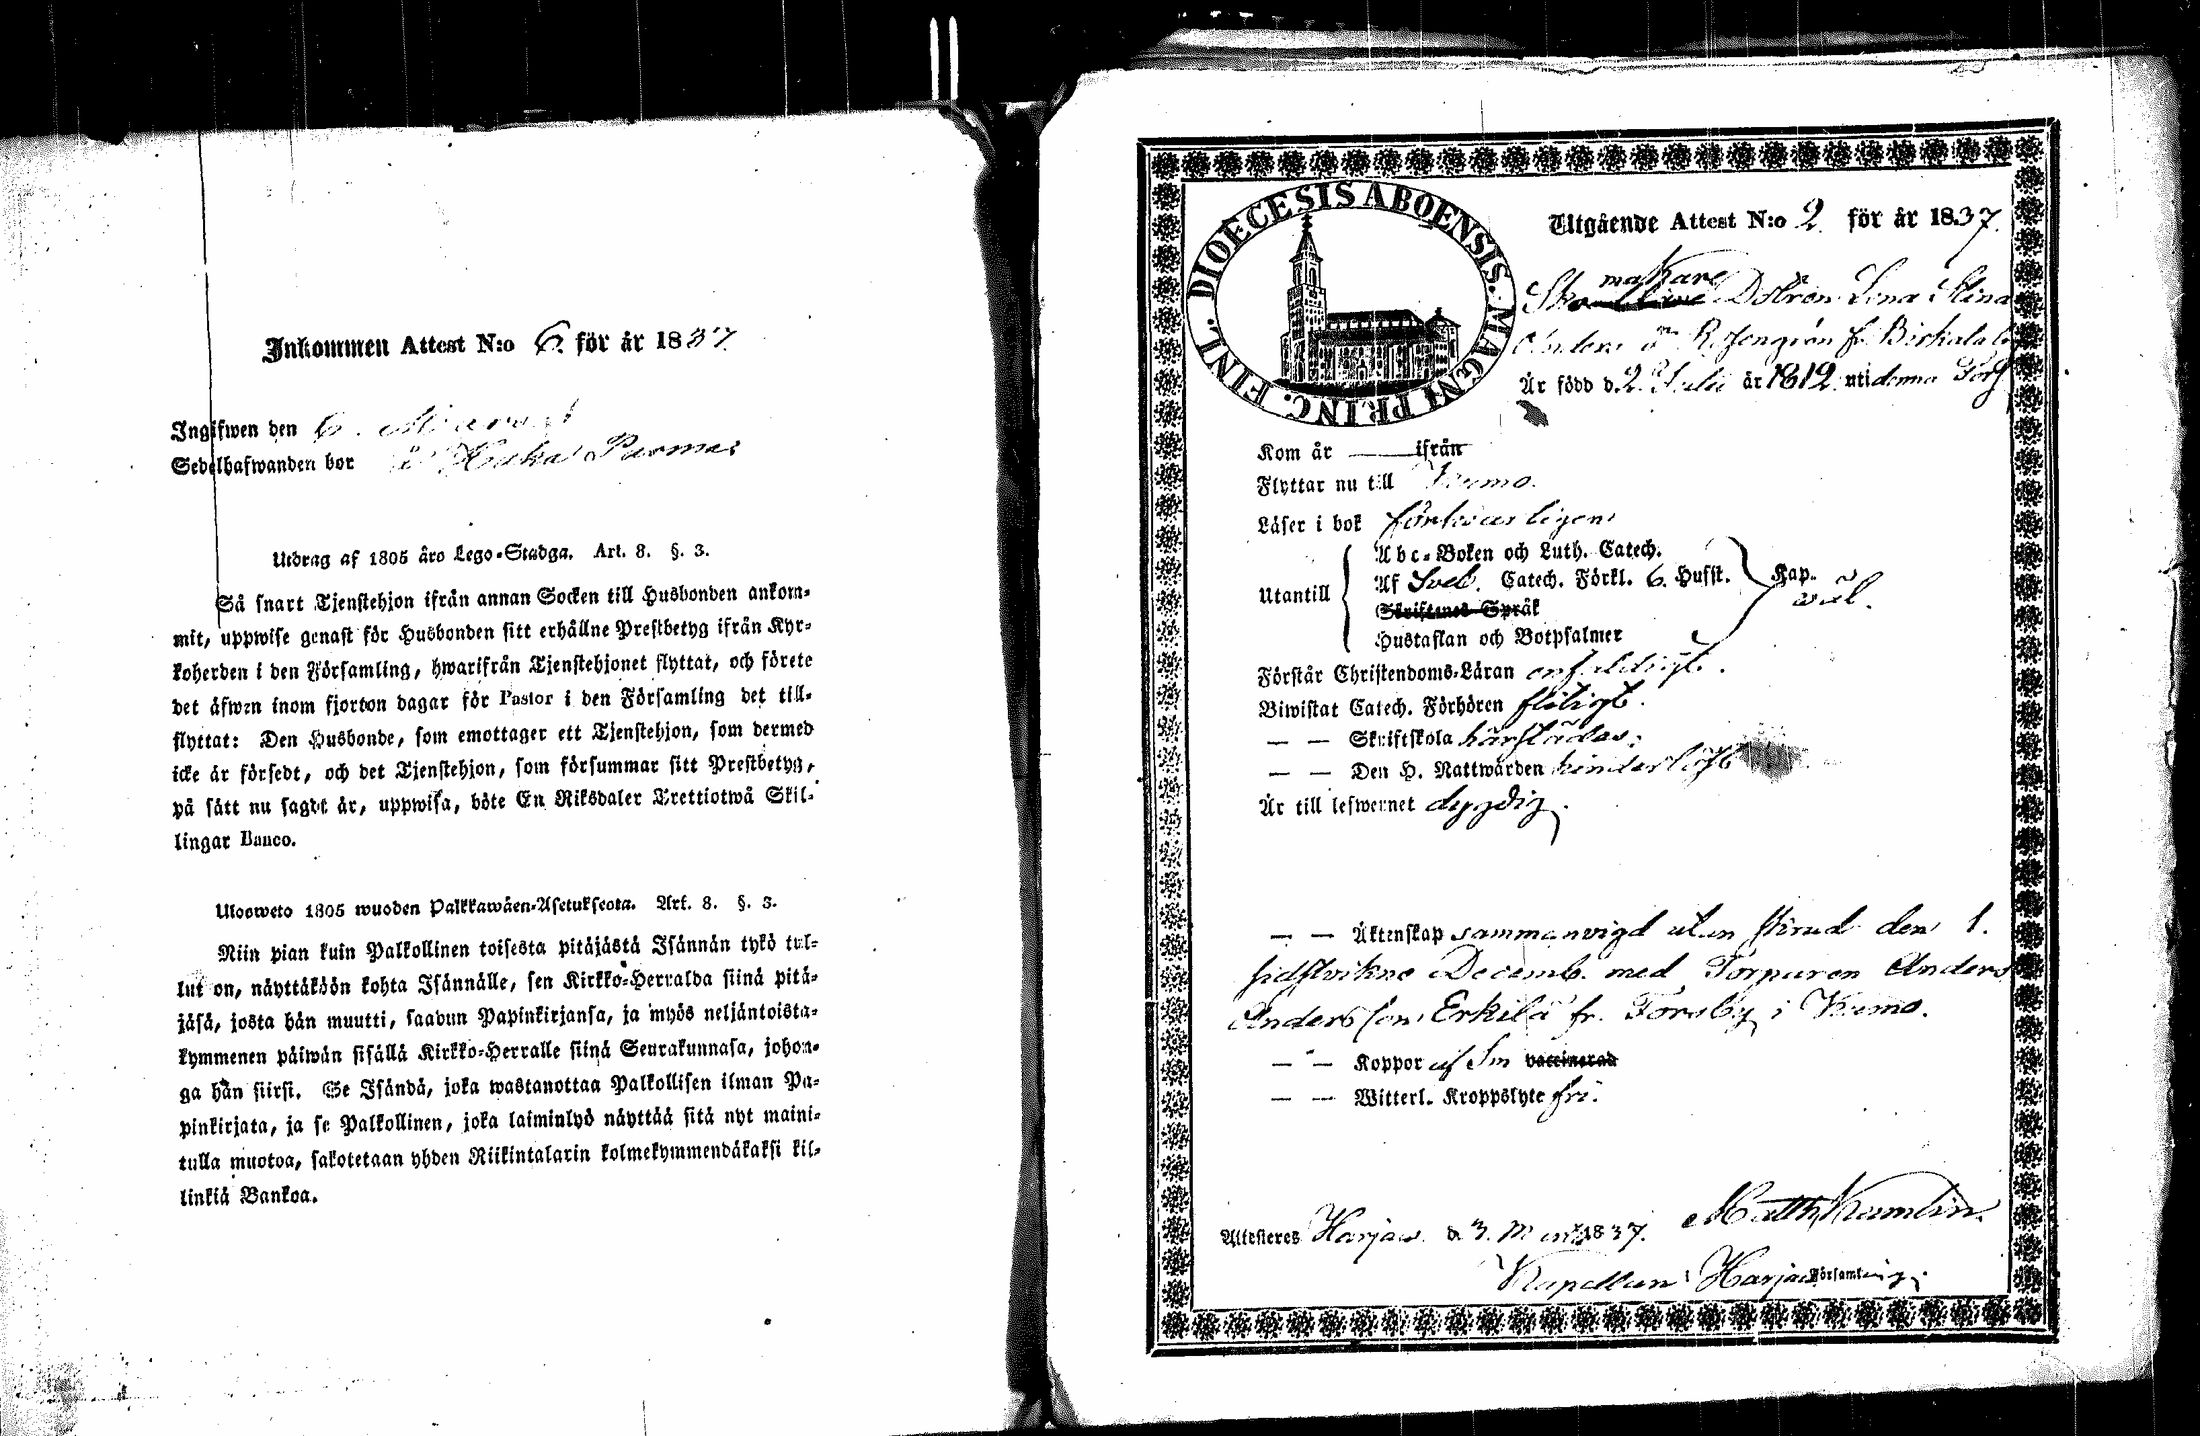 Inkommen Attest N:o 6. för år 1837.
Ingifwen den 6. Mars
Sedelhafwanden bor
Utdrag af 1805 års Lego-Stadga. Art. 8. §. 3.
Så snart Tjenstehjon ifrån annan Socken till Husbonden ankom-
mit, uppwise genast för Husbonden sitt erhållne Prestbetyg ifrån Kyr-
koherden i den Församling, hwarifrån Tjenstehjonet flyttat, och förete
det äfwen inom fjorton dagar för Pastor i den Församling det till-
flyttat: Den Husbonde, som emottager ett Tjenstehjon, som dermed
icke är försedt, och det Tjenstehjon, som försummar sitt Prestbetyg,
på sätt nu sagdt är, uppwisa, böte En Riksdaler Trettiotwå Skil-
lingar Banco.
Ulosweto 1805 wuoden Palkkawäen-Asetuksesta. Art. 8. §. 3.
Niin pian kuin Palkollinen toisesta pitäjästä Isännän tykö tul-
lut on, näyttäköön kohta Isännälle, sen Kirkko-Herralda siinä pitä-
jäsä, josta hän muutti, saadun Papinkirjansa, ja myös neljäntoista-
kymmenen päiwän sisällä Kirkko-Herralle siinä Seurakunnasa, johon-
ga hän siirsi. Se Isändä, joka wastanottaa Palkollisen ilman Pa-
pinkirjata, ja se Palkollinen, joka laiminlyö näyttää sitä nyt maini-
tulla muotoa, sakotetaan yhden Riikintalarin kolmekymmendäkaksi kil-
linkiä Bankoa.
DIOECESIS ABOENSIS. MAGNI PRINC. FINL.
Utgående Attest N:o 2. för år 1837.
makare
Sko Dottren Lena Stina
Anders dr Rosengrön fr Birkala
Är född d. 2. Julii år 1812. uti denna Förs
Kom år — ifrån
Flyttar nu till Wemo.
Läser i bok försvarligen
Abc-Boken och Luth. Catech.
Utantill Af Sveb. Catech. Förkl. 6. Husst. Kap.
wäl.
Skriftenes Språk
Hustaflan och Botpsalmer
Förstår Christendoms-Läran enfaldigt.
Biwistat Catech. Förhören flitigt.
— — Skriftskola härstädes.
— — Den H. Nattwarden hinderlöst
Är till lefwernet dygdig.
— — Äktenskap sammanvigd utan den 1.
sidstvikne Decemb. med Torparen Anders
Andersson Erkilä fr. Torsby i Wemo.
— — Koppor af Sm vaccinerad
— — Witterl. Kroppslyte fri.
Attesteres Harjaw. d. 3. Mars 1837. Matth
Kapellan i Harjaw. Församling.